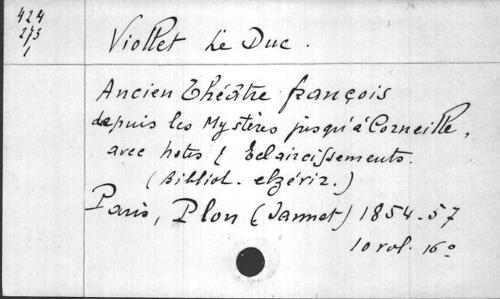 424
273
1
Viollet Le Duc.
Ancien Théâtre françois
depuis les Mystères jusqu'à Corneille,
avec notes & Eclaircissements.
(Bibliot. elzévir.)
Paris, Plon (Jannet) 1854-57
10 vol. 16º